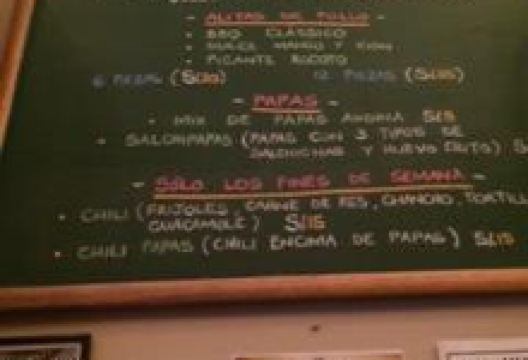 - ALITAS DE POLLO -
• BBQ CLÁSSICO
• DULCE MANGO Y
• PICANTE ROCOTO
6 PIEZAS (S/. 12 PIEZAS (S/.
- PAPAS -
• MIX DE PAPAS ANDINA S/.15
• SALCHIPAPAS (PAPAS CON 3 TIPOS DE
SALCHICHAS Y HUEVO FRITO)
- SÓLO LOS FINES DE SEMANA -
• CHILI (FRIJOLES, CARNE DE RES, CHANCHO, TORTILL
GUACAMOLE) S/.15
• CHILI PAPAS (CHILI ENCIMA DE PAPAS) S/.15